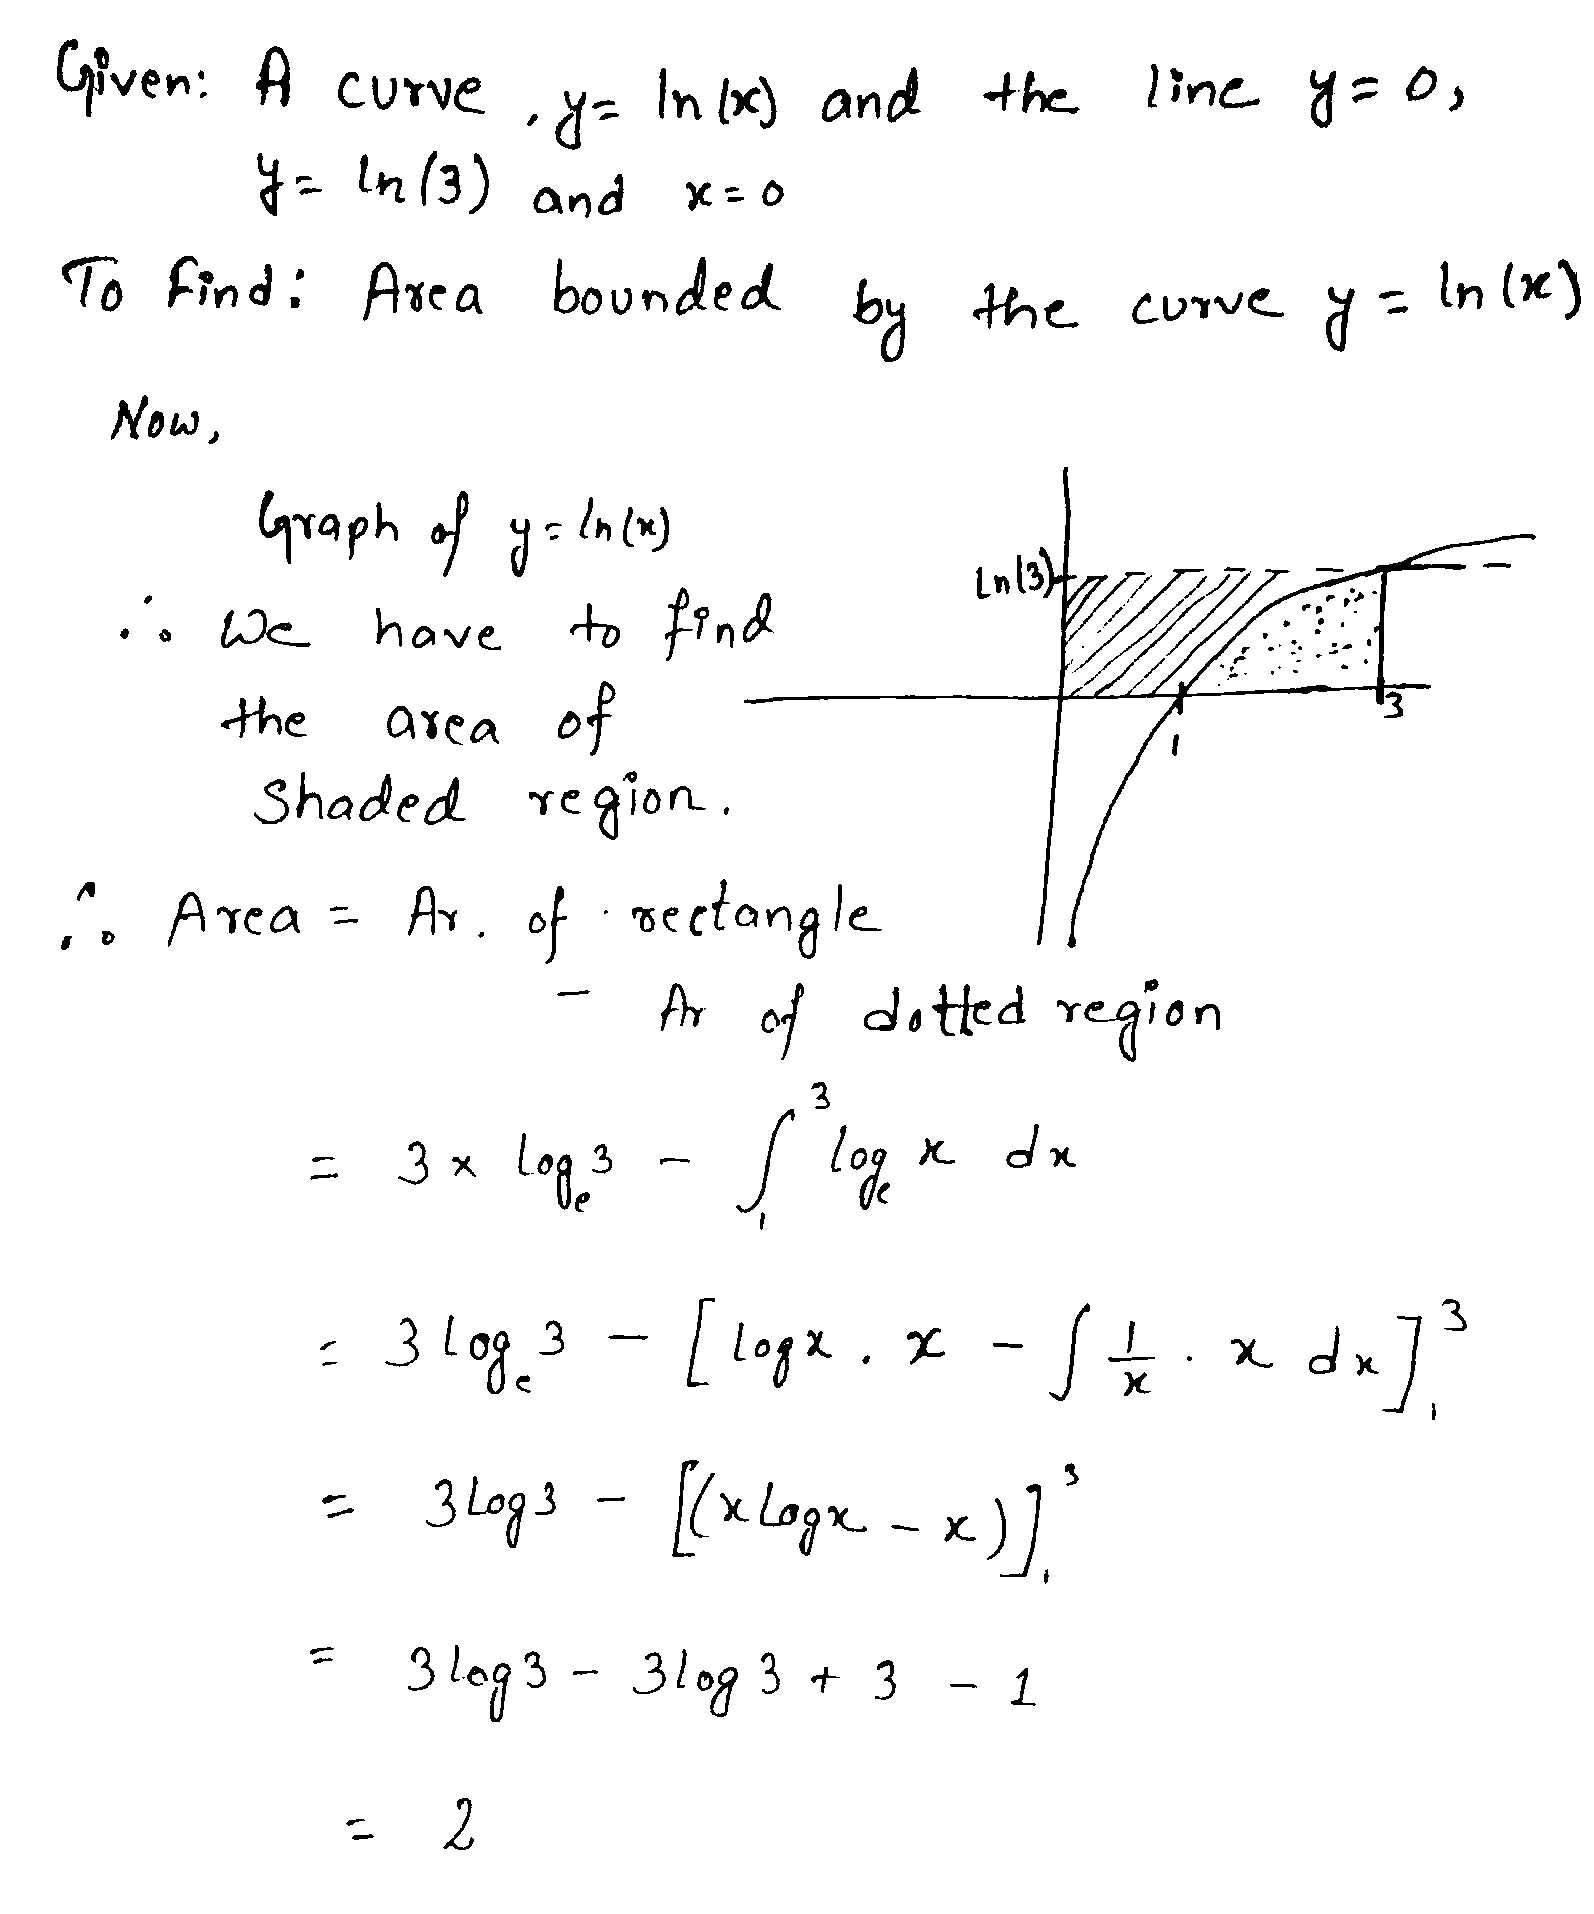 Given: A curve, y = ln(x) and the line y = 0,
y = ln(3) and x = 0
To find: Area bounded by the curve y = ln(x)
Now,
Graph of y = ln(x)
∴ We have to find
the area of
shaded region.
Ln(3)
1
3
∴ Area = Ar. of rectangle
- Ar of dotted region
= 3 × log_e 3 - ∫_1^3 log_e x dx
= 3 log_e 3 - [log x . x - ∫ 1/x . x dx]_1^3
= 3 log 3 - [(x log x - x)]_1^3
= 3 log 3 - 3 log 3 + 3 - 1
= 2